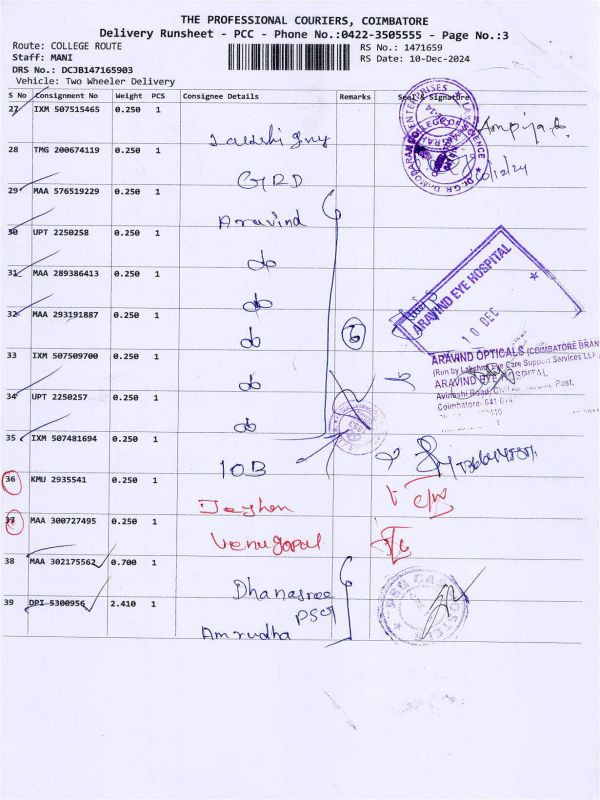 THE PROFESSIONAL COURIERS, COIMBATORE
Delivery Runsheet - PCC - Phone No.:0422-3505555 - Page No.:3
Route: COLLEGE ROUTE RS No.: 1471659
Staff: MANI RS Date: 10-Dec-2024
DRS No.: DCJB147165903
Vehicle: Two Wheeler Delivery
S No Consignment No Weight PCS Consignee Details Remarks Seal & Signature
27 IXM 507515465 0.250 1
28 TMG 200674119 0.250 1
GRD
29 MAA 576519229 0.250 1
Aravind
30 UPT 2250258 0.250 1
do
31 MAA 289386413 0.250 1
do
32 MAA 293191887 0.250 1
do
6
33 IXM 507509700 0.250 1
do
34 UPT 2250257 0.250 1
do
35 IXM 507481694 0.250 1
IOB
36 KMU 2935541 0.250 1
37 MAA 300727495 0.250 1
Venugopal
38 MAA 302175562 0.700 1
Dhanasree
39 DPI 5300956 2.410 1
PSG
Amrudha
ARAVIND EYE HOSPITAL
10 DEC
ARAVIND OPTICALS (COIMBATORE BRAN
(Run by Lakshmi Eye Care Support Services LLP.)
ARAVIND EYE HOSPITAL
Avinashi Road,
Post,
Coimbatore- 641 014